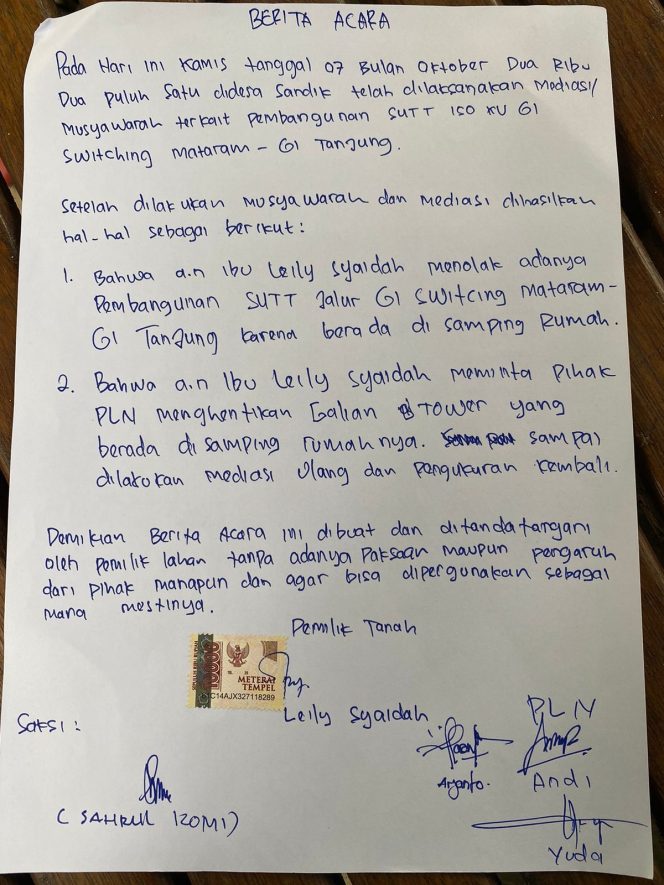 BERITA ACARA
Pada Hari ini Kamis tanggal 07 Bulan Oktober Dua Ribu
Dua puluh Satu didesa Sandik telah dilaksanakan Mediasi/
Musyawarah terkait Pembangunan SUTT 150 KV GI
Switching Mataram - GI Tanjung.
Setelah dilakukan Musyawarah dan Mediasi dihasilkan
hal-hal sebagai berikut :
1. Bahwa a.n Ibu Leily Syaidah menolak adanya
Pembangunan SUTT Jalur GI Switcing Mataram-
GI Tanjung karena berada di samping Rumah.
2. Bahwa a.n Ibu Leily Syaidah meminta pihak
PLN menghentikan Galian TOWER yang
berada disamping rumahnya. sampai
dilakukan mediasi Ulang dan pengukuran Kembali.
Demikian Berita Acara ini dibuat dan ditandatangani
oleh pemilik lahan tanpa adanya Paksaan maupun pengaruh
dari pihak manapun dan agar bisa dipergunakan sebagai
mana mestinya.
Pemilik Tanah
10000
METERAI
TEMPEL
C14AJX327118289
Leily Syaidah
Saksi :
PLN
Aryanto.
Andi
(SAHRUL IZOMI)
Yuda